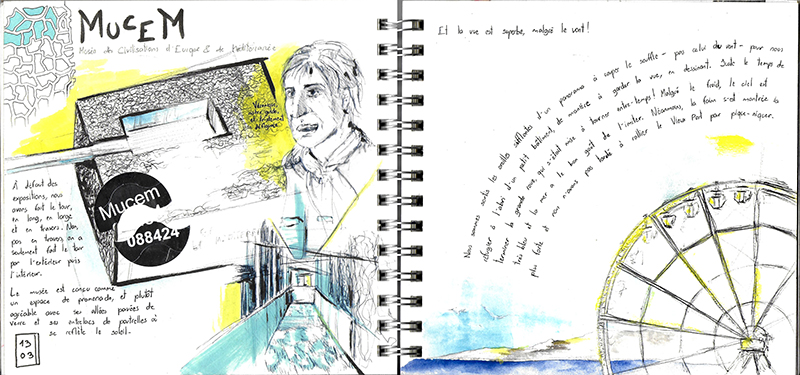 MuceM
Musée des Civilisations d'Europe & de Méditerranée
Véronique,
notre guide,
est totalement
défigurée.
Mucem
088424
À défaut des
expositions, nous
avons fait le tour,
en long, en large
et en travers. Non,
pas en travers, on a
seulement fait le tour
par l'extérieur puis
l'intérieur.
Le musée est conçu comme
un espace de promenade, et plutôt
agréable avec ses allées pavées de
verre et ses entrelacs de poutrelles où
se reflète le soleil.
13
03
Et la vue est superbe, malgré le vent !
Nous sommes sortis les oreilles sifflantes d'un panorama à couper le souffle - pas celui du vent - pour nous
réfugier à l'abri d'un petit bâtiment, de manière à garder la vue, en dessinant. Juste le temps de
terminer la grande roue, qui s'était mise à tourner entre-temps ! Malgré le froid, le ciel est
très bleu et la mer a le bon goût de l'imiter. Néanmoins, la faim s'est montrée la
plus forte et nous n'avons pas tardé à rallier le Vieux Port pour pique-niquer.